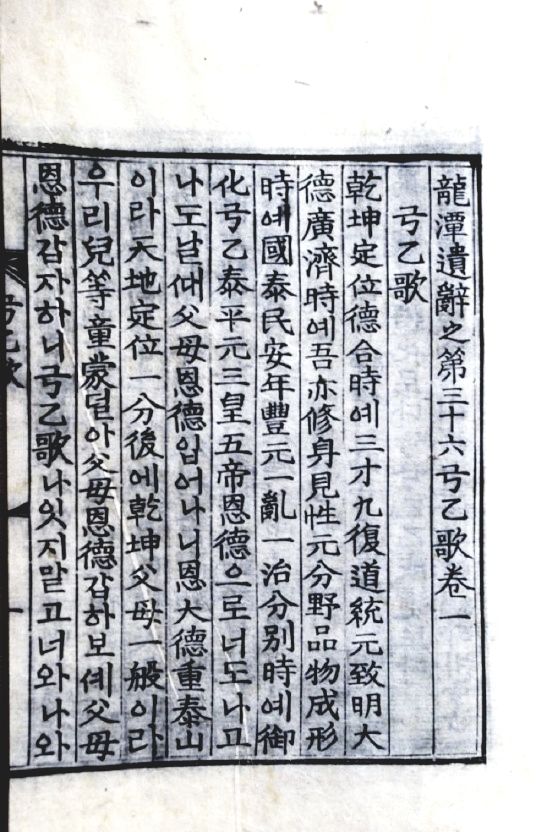 龍潭遺辭之第三十六弓乙歌卷一
弓乙歌
乾坤定位德合時예三才九復道統元致明大
德廣濟時예吾亦修身見性元分野品物成形
時예國泰民安年豐元一亂一治分別時예御
化弓乙泰平元三皇五帝恩德으로너도나고
나도날때父母恩德입어나니恩大德重泰山
이라天地定位一分後에乾坤父母一般이라
우리兒等童蒙덜아父母恩德갑하보셰父母
恩德갑자하니弓乙歌나잇지말고너와나와
弓乙歌
一